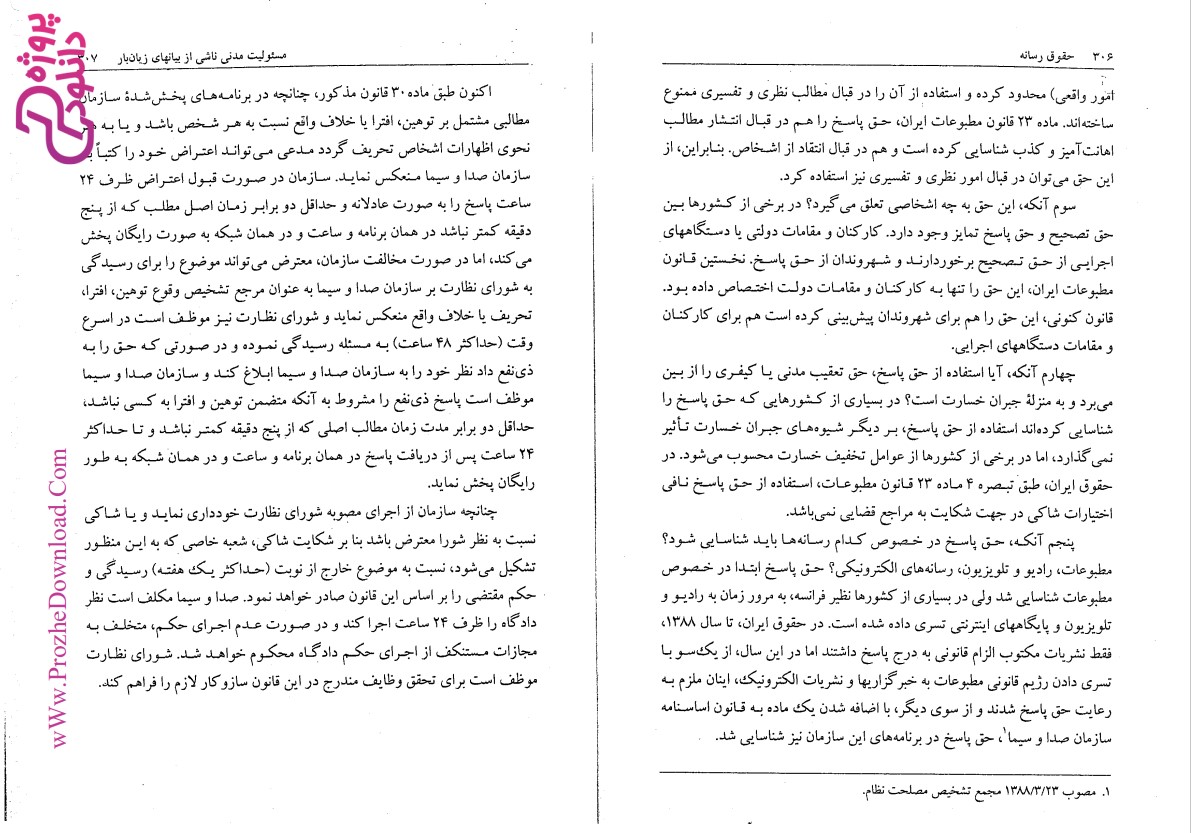 ۳۰۶ حقوق رسانه
امور واقعی) محدود کرده و استفاده از آن را در قبال مطالب نظری و تفسیری ممنوع
ساخته‌اند. ماده ۲۳ قانون مطبوعات ایران، حق پاسخ را هم در قبال انتشار مطالب
اهانت‌آمیز و کذب شناسایی کرده است و هم در قبال انتقاد از اشخاص. بنابراین، از
این حق می‌توان در قبال امور نظری و تفسیری نیز استفاده کرد.
سوم آنکه، این حق به چه اشخاصی تعلق می‌گیرد؟ در برخی از کشورها بین
حق تصحیح و حق پاسخ تمایز وجود دارد. کارکنان و مقامات دولتی یا دستگاههای
اجرایی از حق تصحیح برخوردارند و شهروندان از حق پاسخ. نخستین قانون
مطبوعات ایران، این حق را تنها به کارکنان و مقامات دولت اختصاص داده بود.
قانون کنونی، این حق را هم برای شهروندان پیش‌بینی کرده است هم برای کارکنان
و مقامات دستگاههای اجرایی.
چهارم آنکه، آیا استفاده از حق پاسخ، حق تعقیب مدنی یا کیفری را از بین
می‌برد و به منزلهٔ جبران خسارت است؟ در بسیاری از کشورهایی که حق پاسخ را
شناسایی کرده‌اند استفاده از حق پاسخ، بر دیگر شیوه‌های جبران خسارت تأثیر
نمی‌گذارد، اما در برخی از کشورها از عوامل تخفیف خسارت محسوب می‌شود. در
حقوق ایران، طبق تبصره ۴ ماده ۲۳ قانون مطبوعات، استفاده از حق پاسخ نافی
اختیارات شاکی در جهت شکایت به مراجع قضایی نمی‌باشد.
پنجم آنکه، حق پاسخ در خصوص کدام رسانه‌ها باید شناسایی شود؟
مطبوعات، رادیو و تلویزیون، رسانه‌های الکترونیکی؟ حق پاسخ ابتدا در خصوص
مطبوعات شناسایی شد ولی در بسیاری از کشورها نظیر فرانسه، به مرور زمان به رادیو و
تلویزیون و پایگاههای اینترنتی تسری داده شده است. در حقوق ایران، تا سال ۱۳۸۸،
فقط نشریات مکتوب الزام قانونی به درج پاسخ داشتند اما در این سال، از یک‌سو با
تسری دادن رژیم قانونی مطبوعات به خبرگزاریها و نشریات الکترونیک، اینان ملزم به
رعایت حق پاسخ شدند و از سوی دیگر، با اضافه شدن یک ماده به قانون اساسنامه
سازمان صدا و سیما۱، حق پاسخ در برنامه‌های این سازمان نیز شناسایی شد.
۱. مصوب ۱۳۸۸/۳/۲۳ مجمع تشخیص مصلحت نظام.
مسئولیت مدنی ناشی از بیانهای زیان‌بار
اکنون طبق ماده ۳۰ قانون مذکور، چنانچه در برنامه‌های پخش‌شدهٔ سازمان
مطالبی مشتمل بر توهین، افترا یا خلاف واقع نسبت به هر شخص باشد و یا به هر
نحوی اظهارات اشخاص تحریف گردد مدعی می‌تواند اعتراض خود را کتباً
سازمان صدا و سیما منعکس نماید. سازمان در صورت قبول اعتراض ظرف ۲۴
ساعت پاسخ را به صورت عادلانه و حداقل دو برابر زمان اصل مطلب که از پنج
دقیقه کمتر نباشد در همان برنامه و ساعت و در همان شبکه به صورت رایگان پخش
می‌کند، اما در صورت مخالفت سازمان، معترض می‌تواند موضوع را برای رسیدگی
به شورای نظارت بر سازمان صدا و سیما به عنوان مرجع تشخیص وقوع توهین، افترا،
تحریف یا خلاف واقع منعکس نماید و شورای نظارت نیز موظف است در اسرع
وقت (حداکثر ۴۸ ساعت) به مسئله رسیدگی نموده و در صورتی که حق را به
ذی‌نفع داد نظر خود را به سازمان صدا و سیما ابلاغ کند و سازمان صدا و سیما
موظف است پاسخ ذی‌نفع را مشروط به آنکه متضمن توهین و افترا به کسی نباشد،
حداقل دو برابر مدت زمان مطالب اصلی که از پنج دقیقه کمتر نباشد و تا حداکثر
۲۴ ساعت پس از دریافت پاسخ در همان برنامه و ساعت و در همان شبکه به طور
رایگان پخش نماید.
چنانچه سازمان از اجرای مصوبه شورای نظارت خودداری نماید و یا شاکی
نسبت به نظر شورا معترض باشد بنا بر شکایت شاکی، شعبه خاصی که به این منظور
تشکیل می‌شود، نسبت به موضوع خارج از نوبت (حداکثر یک هفته) رسیدگی و
حکم مقتضی را بر اساس این قانون صادر خواهد نمود. صدا و سیما مکلف است نظر
دادگاه را ظرف ۲۴ ساعت اجرا کند و در صورت عدم اجرای حکم، متخلف به
مجازات مستنکف از اجرای حکم دادگاه محکوم خواهد شد. شورای نظارت
موظف است برای تحقق وظایف مندرج در این قانون سازوکار لازم را فراهم کند.
پروژه
دانلود
wWw.ProzheDownload.Com